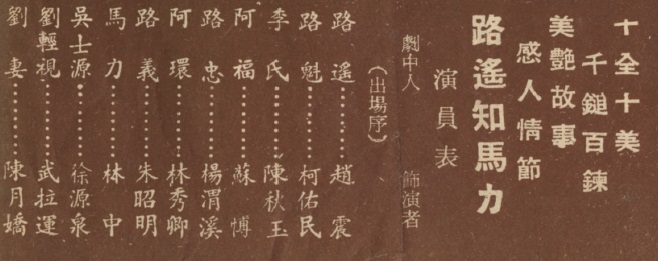 十全十美
千鎚百鍊
美艷故事
感人情節
路遙知馬力
演員表
劇中人　飾演者
（出場序）
路遙………趙震
路魁………柯佑民
李氏………陳秋玉
阿福………蘇博
路忠………楊渭溪
阿環………林秀卿
路義………朱昭明
馬力………林中
吳士源………徐源泉
劉輕視………武拉運
劉妻………陳月嬌